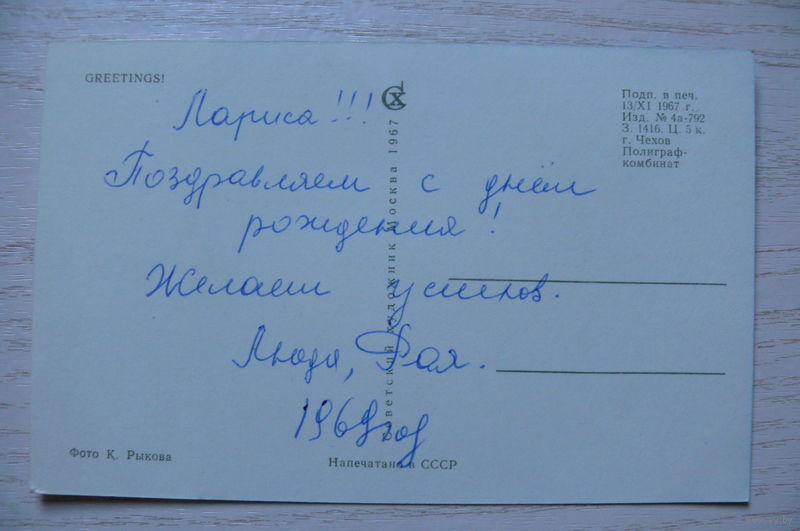 GREETINGS!
Лариса!!!
Поздравляем с днём
рождения!
Желаем успехов.
Люда, Рая.
1969 год
Советский художник Москва 1967
Подп. в печ.
13/XI 1967 г.
Изд. № 4а-792
З. 1416. Ц. 5 к.
г. Чехов
Полиграф-
комбинат
Фото К. Рыкова
Напечатано в СССР